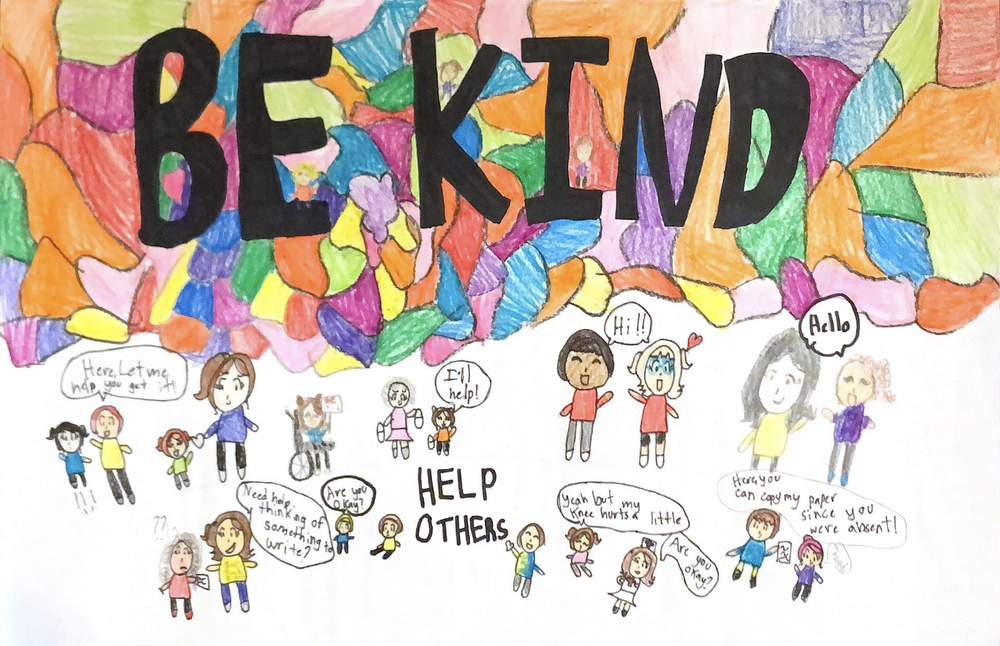 BE KIND
Here, Let me
help you get it!
I'll
help!
Hi!!
Hello
HELP
OTHERS
??
Need help
thinking of
something to
write?
Are you
okay?
Yeah but my
knee hurts a little
Are you
okay?
Here, you
can copy my paper
since you
were absent!